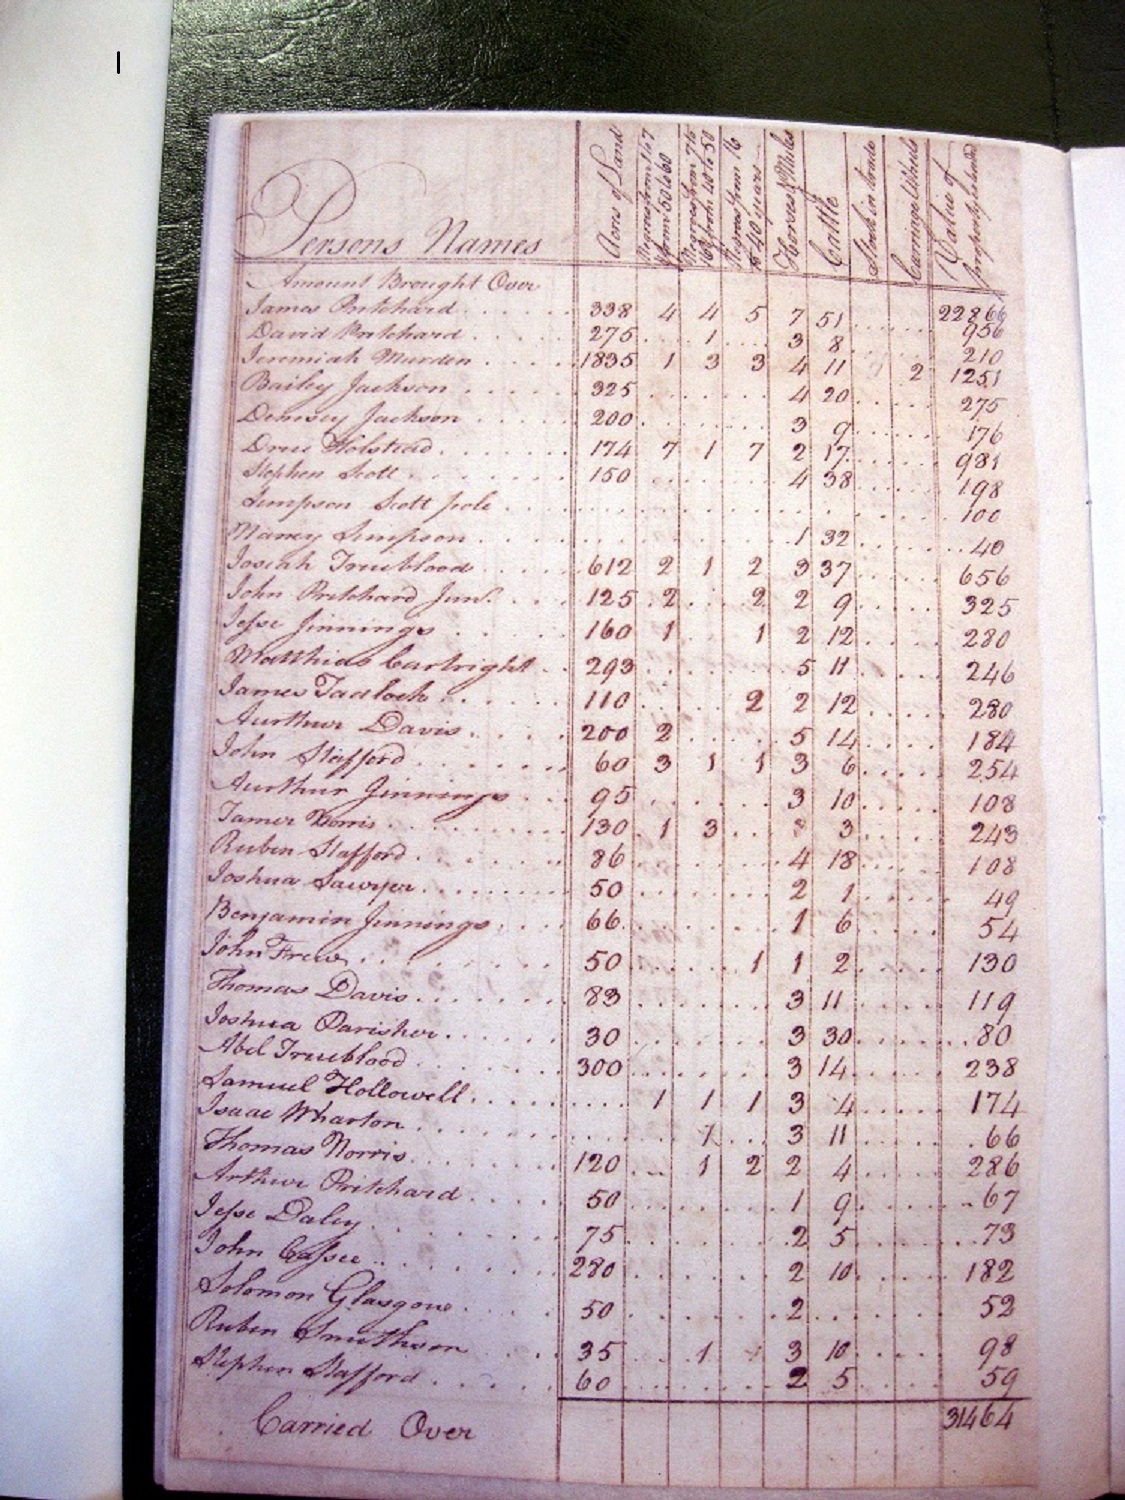 Persons Names | Acres of Land | Negroes from 1 to 7 & from 50 to 60 | Negroes from 7 to 16 & from 40 to 50 | Negroes from 16 to 40 years | Horses & Mules | Cattle | Stock in trade | Carriage Wheels | Value of property
Amount Brought Over 22866
James Pritchard 338 4 4 5 7 51 956
David Pritchard 275 1 3 8 210
Jeremiah Murden 1835 1 3 3 4 11 2 1251
Bailey Jackson 325 4 20 275
Demsey Jackson 200 3 9 176
Drue Holstead 174 7 1 7 2 17 981
Stephen Scott 150 4 38 198
Simpson Scott pole 100
Nancy Simpson 1 32 40
Josiah Trueblood 612 2 1 2 3 37 656
John Pritchard Junr. 125 2 2 2 9 325
Jesse Jinnings 160 1 1 2 12 280
Matthias Cartright 293 5 11 246
James Tadlock 110 2 2 12 280
Aurthur Davis 200 2 5 14 184
John Stafford 60 3 1 1 3 6 254
Aurthur Jinnings 95 3 10 108
Tamer Norris 130 1 3 3 243
Rubin Stafford 86 4 18 108
Joshua Sawyer 50 2 1 49
Benjamin Jinnings 66 1 6 54
John Frew 50 1 1 2 130
Thomas Davis 83 3 11 119
Joshua Parisher 30 3 30 80
Abel Trueblood 300 3 14 238
Samuel Hollowell 1 1 1 3 4 174
Isaac Wharton 3 11 66
Thomas Norris 120 1 2 2 4 286
Arthur Pritchard 50 1 9 67
Jesse Daley 75 2 5 73
John Cassee 280 2 10 182
Solomon Glasgow 50 2 52
Ruben Smithson 35 1 3 10 98
Stephen Stafford 60 2 5 59
Carried Over 31464